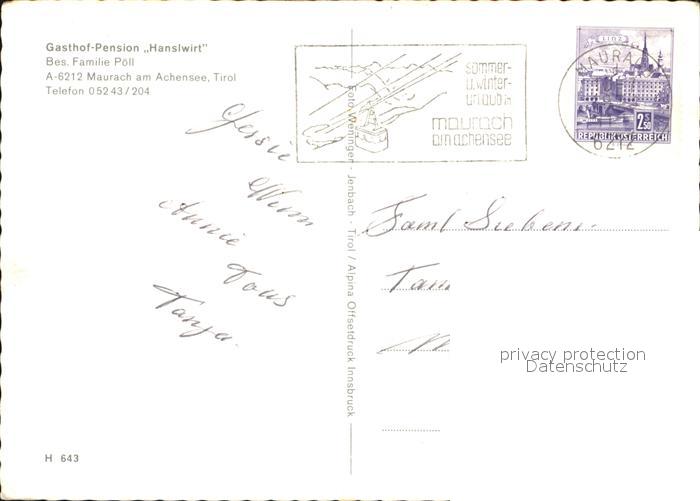 Gasthof-Pension „Hanslwirt"
Bes. Familie Pöll
A-6212 Maurach am Achensee, Tirol
Telefon 05243/204
sommer-
u. winter-
urlaub in
maurach
am achensee
LINZ
2.50
REPUBLIK ÖSTERREICH
MAURACH
6212
Jessie
Wim
Annie
Tous
Tanja.
Foto Weninger - Jenbach - Tirol / Alpina Offsetdruck Innsbruck
Faml
Tam
privacy protection
Datenschutz
H 643